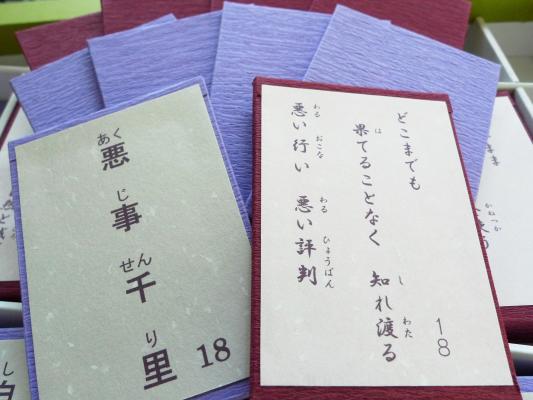 悪事千里
あくじせんり
18
どこまでも
果てることなく 知れ渡る
は し わた
悪い行い 悪い評判
わる おこな わる ひょうばん
18